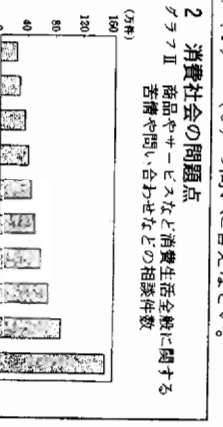 2 消費社会の問題点
グラフⅡ 商品やサービスなど消費生活全般に関する
苦情や問い合わせなどの相談件数
(万件)
160
120
80
40
0